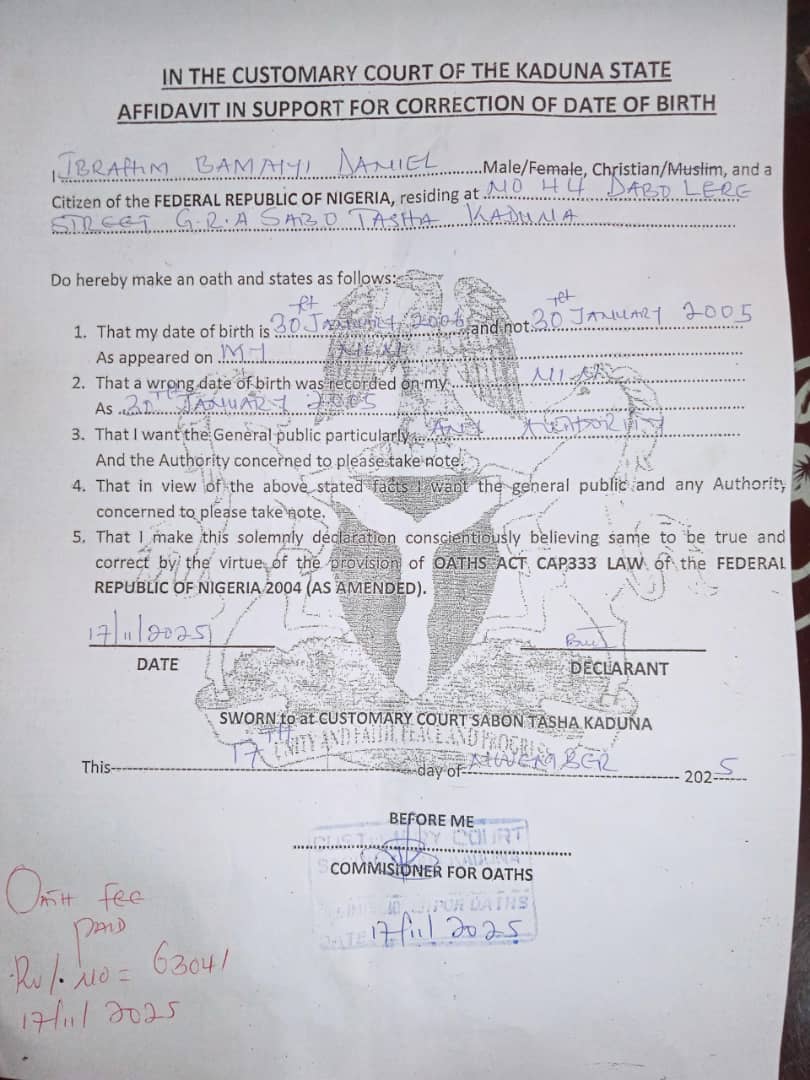 IN THE CUSTOMARY COURT OF THE KADUNA STATE
AFFIDAVIT IN SUPPORT FOR CORRECTION OF DATE OF BIRTH
I IBRAHIM BAMAIYI DANIEL Male/Female, Christian/Muslim, and a
Citizen of the FEDERAL REPUBLIC OF NIGERIA, residing at NO 44 DABO LERE
STREET G.R.A SABO TASHA KADUNA
Do hereby make an oath and states as follows:
1. That my date of birth is 30 JANUARY and not 30 JANUARY 2005
As appeared on MY NIN
2. That a wrong date of birth was recorded on my NIN
As 30TH JANUARY 2005
3. That I want the General public particularly ANY AUTHORITY
And the Authority concerned to please take note.
4. That in view of the above stated facts I want the general public and any Authority
concerned to please take note.
5. That I make this solemnly declaration conscientiously believing same to be true and
correct by the virtue of the provision of OATHS ACT CAP333 LAW of the FEDERAL
REPUBLIC OF NIGERIA 2004 (AS AMENDED).
17/11/2025
DATE
DECLARANT
SWORN to at CUSTOMARY COURT SABON TASHA KADUNA
UNITY AND FAITH, PEACE AND PROGRESS
This 17TH day of NOVEMBER 2025
BEFORE ME
CUSTOMARY COURT
COMMISIONER FOR OATHS
FOR OATHS
DATE 17/11/2025
OATH fee
PAID
RV/. NO = 63041
17/11/2025